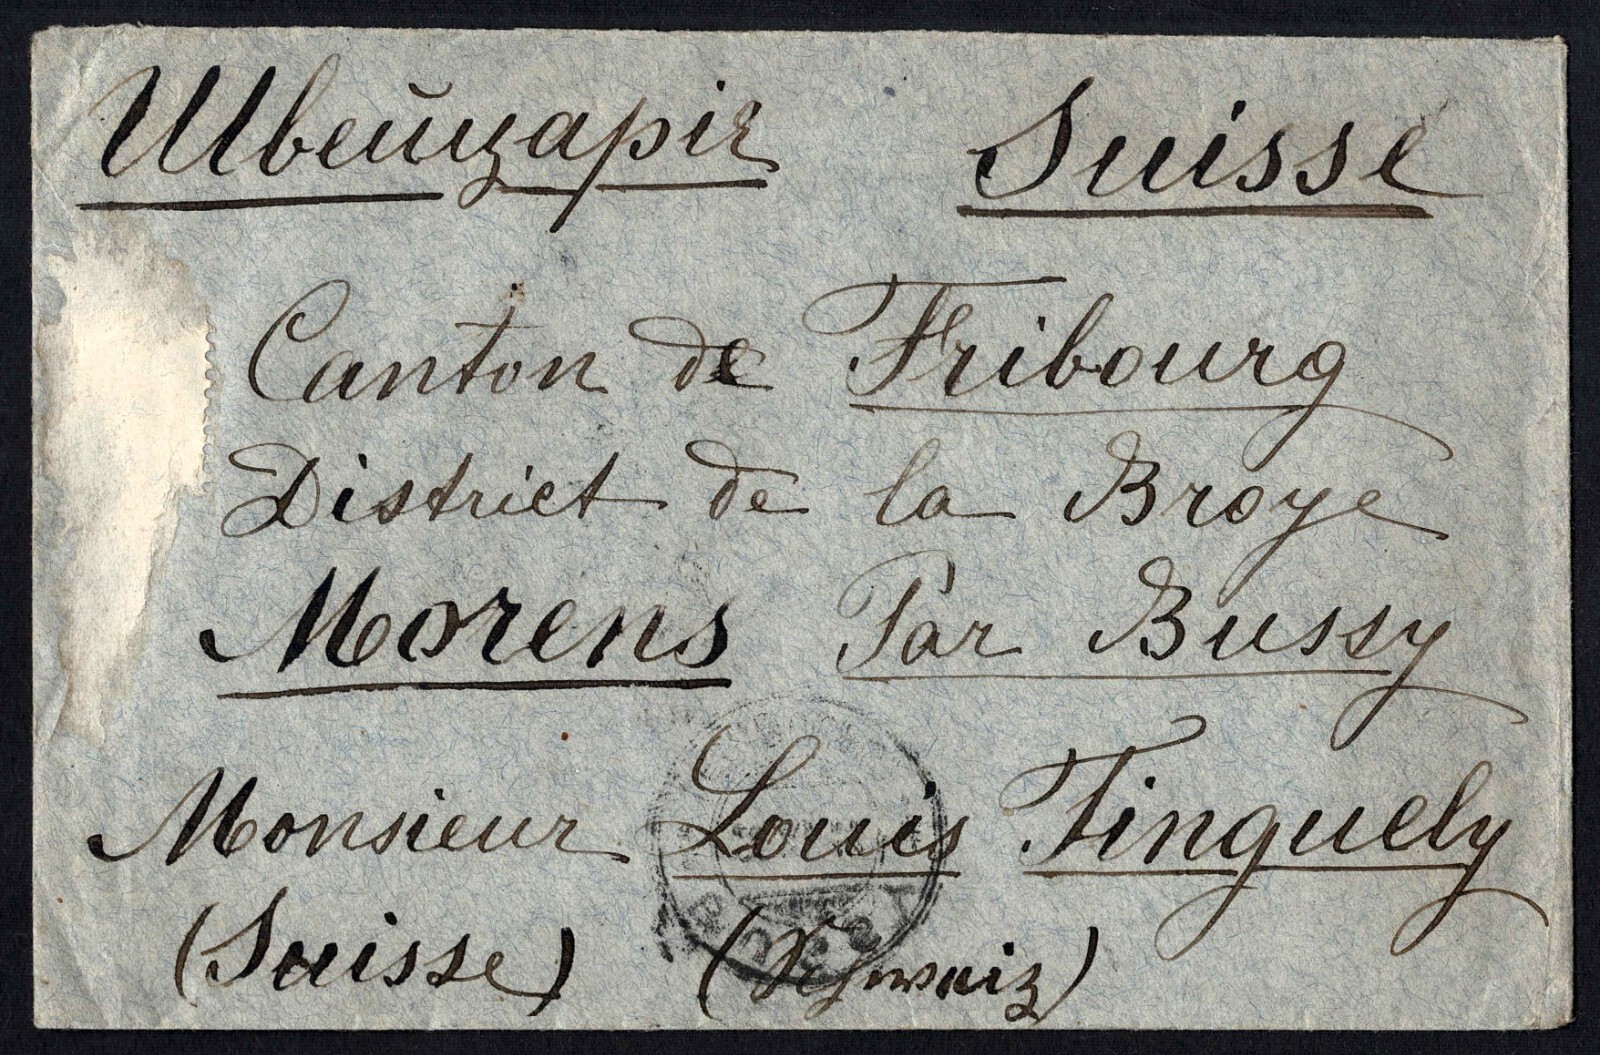 Швейцарія Suisse
Canton de Fribourg
District de la Broye
Morens Par Bussy
Monsieur Louis Tinguely
(Suisse) (Schwaiz)